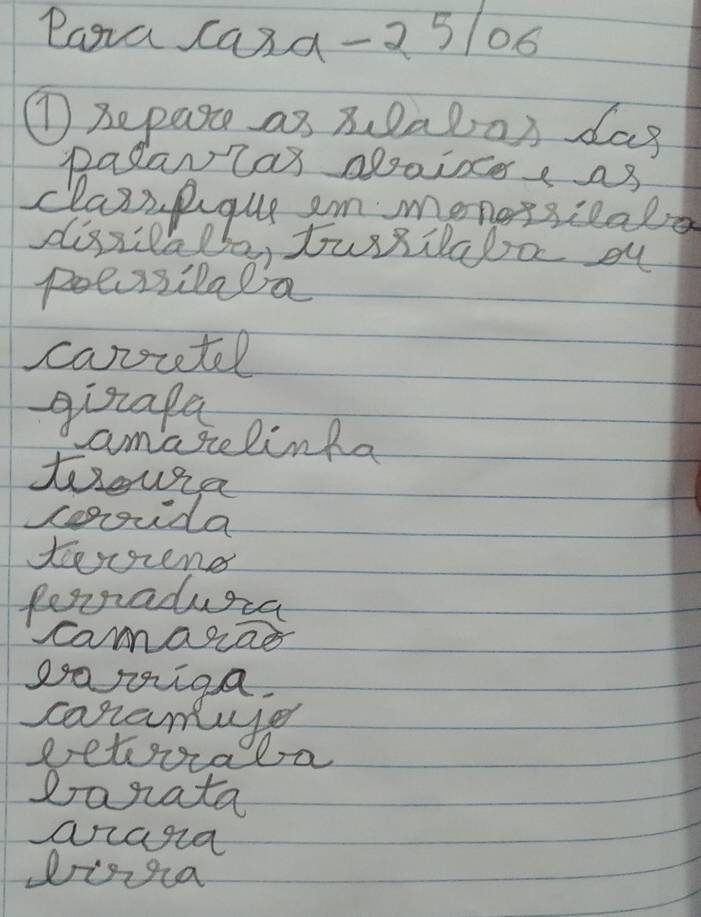 Para casa - 25/06
① separe as silabas das
palavras abaixo e as
classifique em monossilaba
dissilaba, trissilaba ou
polissilaba
carretel
girafa
amarelinha
tesoura
corrida
terreno
ferradura
camarão
barriga.
caramujo
beterraba
barata
arara
birra